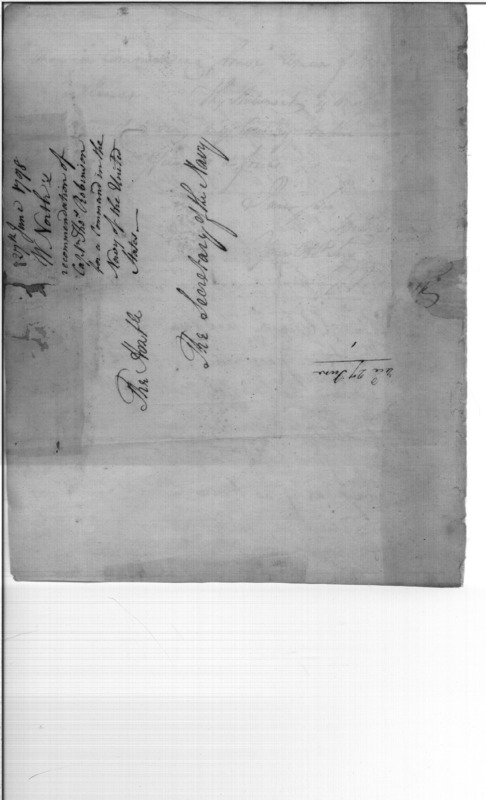 27th June 1798
W North's
recommendation of
Capt Thos Robinson
for a Command in the
Navy of the United
States—
The Honble
The Secretary of the Navy
27 June